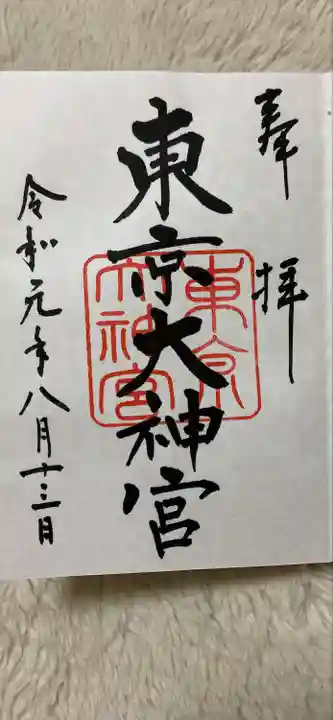 奉拝
東京大神宮
東京大神宮
令和元年八月十三日